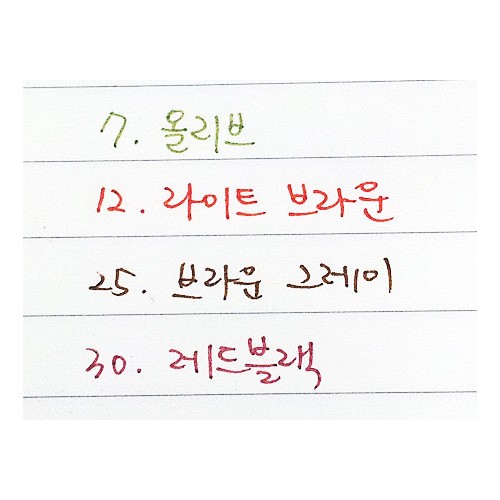 7. 올리브
12. 라이트 브라운
25. 브라운 그레이
30. 레드블랙